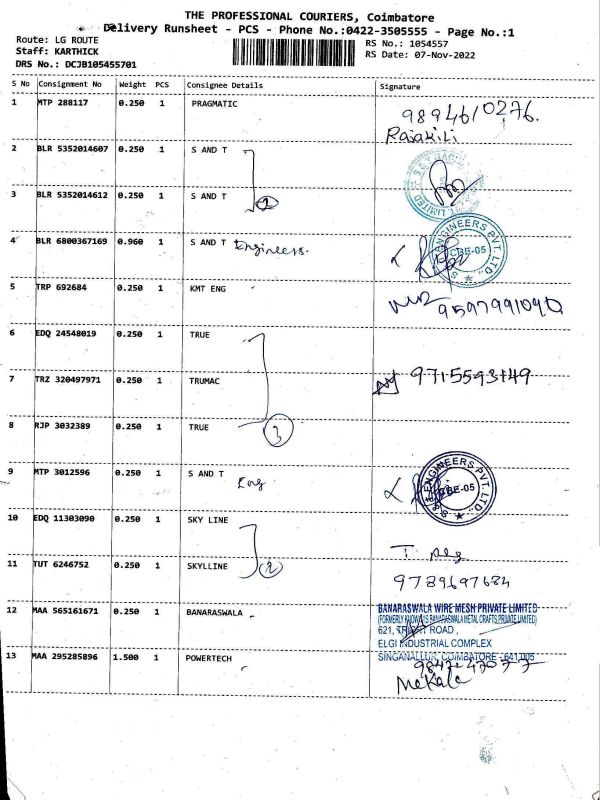 THE PROFESSIONAL COURIERS, Coimbatore
Delivery Runsheet - PCS - Phone No.:0422-3505555 - Page No.:1
Route: LG ROUTE
Staff: KARTHICK
DRS No.: DCJB105455701
RS No.: 1054557
RS Date: 07-Nov-2022
S No Consignment No Weight PCS Consignee Details Signature
1 MTP 288117 0.250 1 PRAGMATIC
9894610276.
Rajakili
2 BLR 5352014607 0.250 1 S AND T
3 BLR 5352014612 0.250 1 S AND T
2
4 BLR 6800367169 0.960 1 S AND T Engineers.
ENGINEERS PVT. LTD.
CBE-05
5 TRP 692684 0.250 1 KMT ENG
9597991090
6 EDQ 24548019 0.250 1 TRUE
7 TRZ 320497971 0.250 1 TRUMAC
9715593149
8 RJP 3032389 0.250 1 TRUE
3
9 MTP 3012596 0.250 1 S AND T Eng
S & T ENGINEERS PVT. LTD.,
CBE-05
10 EDQ 11303090 0.250 1 SKY LINE
11 TUT 6246752 0.250 1 SKYLLINE
2
9789697684
12 MAA 565161671 0.250 1 BANARASWALA
BANARASWALA WIRE MESH PRIVATE LIMITED
(FORMERLY KNOWN AS BANARASWALA METAL CRAFTS PRIVATE LIMITED)
621, TRICHY ROAD,
ELGI INDUSTRIAL COMPLEX
SINGANALLUR, COIMBATORE - 641 005
13 MAA 295285896 1.500 1 POWERTECH
Mekala